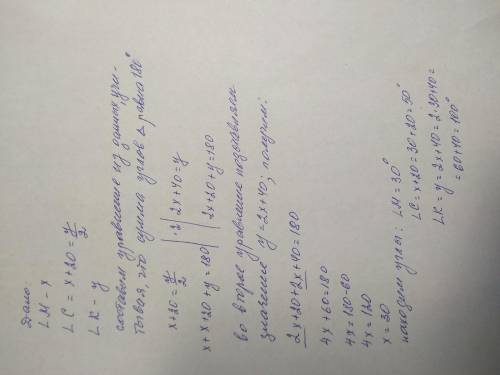 Дано
∠M - x
∠C = x+20 = y/2
∠K - y
составим уравнение из данных, учи-
тывая, что сумма углов Δ равна 180°
x+20 = y/2 | ·2 | 2x+40=y
x+x+20+y=180 | 2x+20+y=180
во второе уравнение подставляем
значение y=2x+40; получим:
2x+20+2x+40=180
4x+60=180
4x=180-60
4x=120
x=30
находим углы: ∠M=30°
∠C=x+20=30+20=50°
∠K=y=2x+40=2·30+40=
=60+40=100°